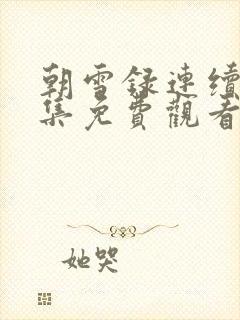 朝雪録連續
集免費觀看
她哭